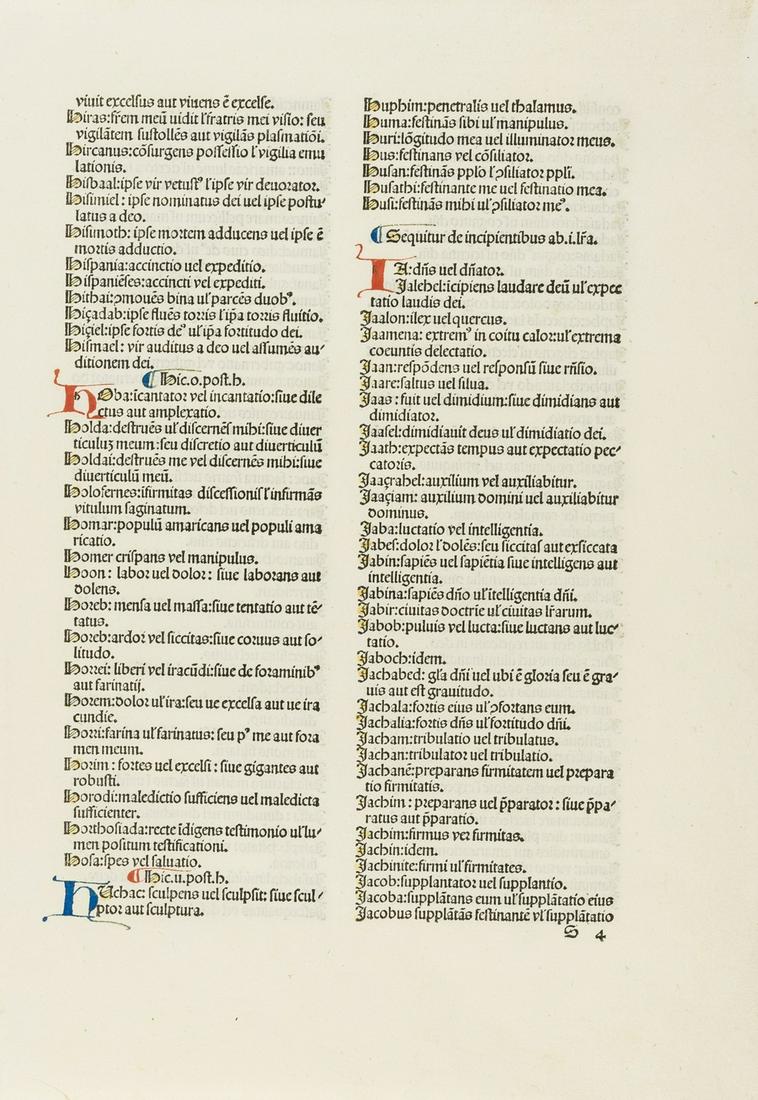 viuit excelsus aut viuens ē excelse.
Hiras:frēm meū uidit ł fratris mei visio: seu
vigilātem sustollēs aut vigilās plasmatiōi.
Hircanus:cōsurgens possessio ł vigilia emu
lationis.
Hisbaal:ipse vir vetustꝰ ł ipse vir deuorator.
Hisimiel: ipse nominatus dei uel ipse postu⸗
latus a deo.
Hisimoth: ipse mortem adducens uel ipse ē
mortis adductio.
Hispania:accinctio uel expeditio.
Hispaniēses:accincti vel expediti.
Hithai:ꝯmouēs bina uł parcēs duobꝰ.
Hiçadab:ipse fluēs torris ł ip̄a torris fluitio.
Hiçiel:ipse fortis deꝰ uł ip̄a fortitudo dei.
Hismael: vir auditus a deo uel assumēs au⸗
ditionem dei.
¶ Hic.o.post.h.
HOba:īcantator vel incantatio:siue dile
ctus aut amplexatio.
Holda:destruēs uł discernēs mihi:siue diuer
ticuluꝫ meum:seu discretio aut diuerticulū
Holdai:destruēs me vel discernēs mihi:siue
diuerticulū meū.
Holofernes:īfirmitas discessionis ł infirmās
vitulum saginatum.
Homar:populū amaricans uel populi ama
ricatio.
Homer crispans vel manipulus.
Hoon: labor uel dolor: siue laborans aut
dolens.
Horeb: mensa uel massa:siue tentatio aut tē⸗
tatus.
Horeb:ardor vel siccitas:siue coruus aut so⸗
litudo.
Horrei: liberi vel iracūdi:siue de foraminibꝰ
aut farinatij.
Horem:dolor uł ira:seu ue excelsa aut ue ira
cundie.
Horri:farina uł farinatus: seu pꝰ me aut fora
men meum.
Horim: fortes uel excelsi: siue gigantes aut
robusti.
Horodi:maledictio sufficiens uel maledicta
sufficienter.
Horthosiada:recte īdigens testimonio uł lu⸗
men positum testificationi.
Hosa:spes vel saluatio.
¶ Hic.u.post.h.
HUchac: sculpens uel sculpsit: siue scul⸗
ptor aut sculptura.
Huphim:penetralis uel thalamus.
Huma:festinās sibi uł manipulus.
Huri:lōgitudo mea uel illuminator meus.
Hus:festinans vel cōsiliator.
Husan:festinās pplo ł ꝯsiliator ppli.
Husathi:festinante me uel festinatio mea.
Husi:festinās mihi uł ꝯsiliator meꝰ.
¶ Sequitur de incipientibus ab.i.lr̄a.
IA:dn̄s uel dn̄ator.
Jalehel:īcipiens laudare deū uł expec
tatio laudis dei.
Jaalon:ilex uel quercus.
Jaamena: extremꝰ in coitu calor:uł extrema
coeuntis delectatio.
Jaan:respōdens uel responsū siue rn̄sio.
Jaare:saltus uel silua.
Jaas: fuit uel dimidium:siue dimidians aut
dimidiator.
Jaasel:dimidiauit deus uł dimidiatio dei.
Jaath:expectās tempus aut expectatio pec⸗
catoris.
Jaaçrahel:auxilium vel auxiliabitur.
Jaaçiam: auxilium domini uel auxiliabitur
dominus.
Jaba:luctatio vel intelligentia.
Jabes:dolor ł dolēs:seu siccitas aut exsiccata
Jabin:sapiēs uel sapiētia siue intelligens aut
intelligentia.
Jabina:sapiēs dn̄o uł ītelligentia dn̄i.
Jabir:ciuitas doctrīe uł ciuitas lr̄arum.
Jabob:puluis vel lucta:siue luctans aut luc⸗
tatio.
Jaboch:idem.
Jachabed: gl̄a dn̄i uel ubi ē gloria seu ē gra⸗
uis aut est grauitudo.
Jachala:fortis eius uł ꝯfortans eum.
Jachalia:fortis dn̄s uł fortitudo dn̄i.
Jacham:tribulatio uel tribulatus.
Jachan:tribulator uel tribulatio.
Jachanē:preparans firmitatem uel prepara
tio firmitatis.
Jachim: preparans uel p̄parator: siue p̄pa⸗
ratus aut p̄paratio.
Jachim:firmus vez firmitas.
Jachin:idem.
Jachinite:firmi uł firmitates.
Jacob:supplantator uel supplantio.
Jacoba:supplātans eum uł supplātatio eius
Jacobus supplātās festinantē vł supplātatio
S 4